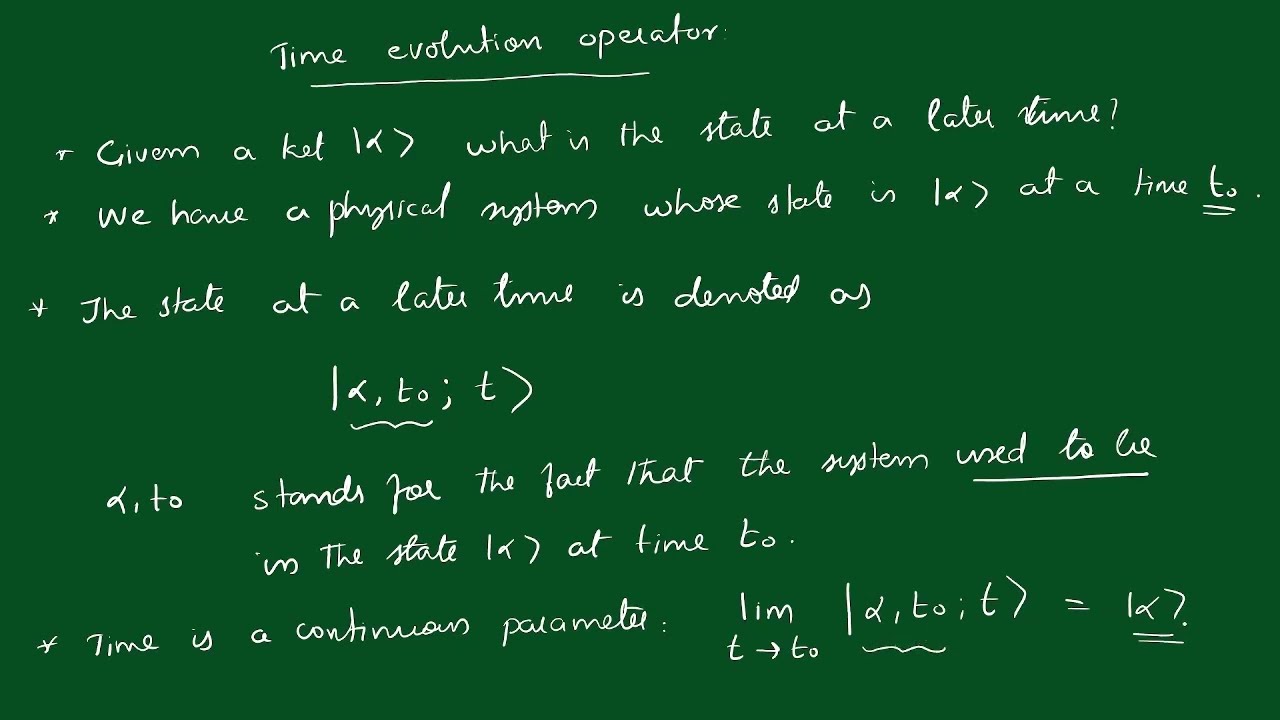 Time evolution operator:
* Given a ket |α⟩ what is the state at a later time?
* We have a physical system whose state is |α⟩ at a time t₀.
* The state at a later time is denoted as
|α, t₀; t⟩
α, t₀ stands for the fact that the system used to be
in the state |α⟩ at time t₀.
* Time is a continuous parameter: lim |α, t₀; t⟩ = |α⟩.
t → t₀